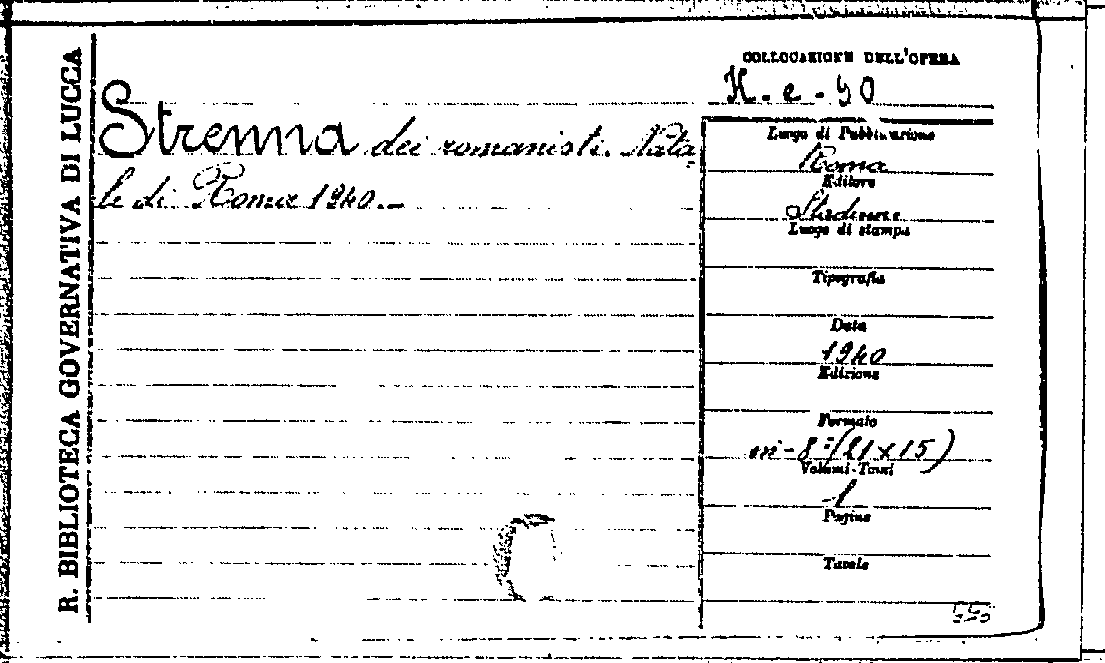 R. BIBLIOTECA GOVERNATIVA DI LUCCA
Strenna dei romanisti. Nata-
le di Roma 1940.—
COLLOCAZIONE DELL'OPERA
H. e - 90
Luogo di Pubblicazione
Roma
Editore
Luogo di stampa
Tipografia
Data
1940
Edizione
Formato
in-8° (21 x 15)
Volumi-Tomi
1
Pagine
Tavole